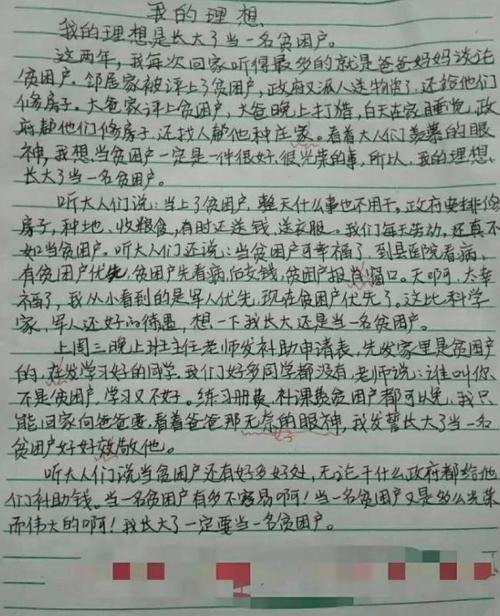 我的理想
我的理想是长大了当一名贫困户。
这两年,我每次回家听得最多的就是爸爸妈妈谈论
贫困户。邻居家被评上了贫困户,政府又派人送物资了,还给他们
修房子。大爸家评上贫困户,大爸晚上打牌,白天在家睡觉,政
府帮他们修房子,还找人帮他种庄家。看着大人们羡慕的眼
神,我想,当贫困户一定是一件很好,很光荣的事,所以,我的理想,
长大了当一名贫困户。
听大人们说:当上了贫困户,整天什么事也不用干。政府安排修
房子,种地、收粮食,有时还送钱、送衣服。我们每天劳动,还真不
如当贫困户。听大人们还说:当贫困户可幸福了,到县医院看病,
有贫困户优先,贫困户先看病,后支钱,贫困户报肖窗口。天啊,太幸
福了,我从小看到的是军人优先,现在贫困户优先了。这比科学
家,军人还好的待遇,想一下我长大还是当一名贫困户。
上周三晚上班主任老师发补助申请表,先发家里是贫困户
的,在发学习好的同学,我们好多同学都没有,老师说:谁叫你
不是贫困户,学习又不好。练习册费、补课费贫困户都可以免,我只
能回家向爸爸要,看着爸爸那无奈的眼神,我发誓长大了当一名
贫困户好好效敬他。
孝
听大人们说当贫困户还有好多好处,无论干什么政府都给他
们补助钱。当一名贫困户有多不容易啊!当一名贫困户又是多么光荣
而伟大的啊!我长大了一定要当一名贫困户。